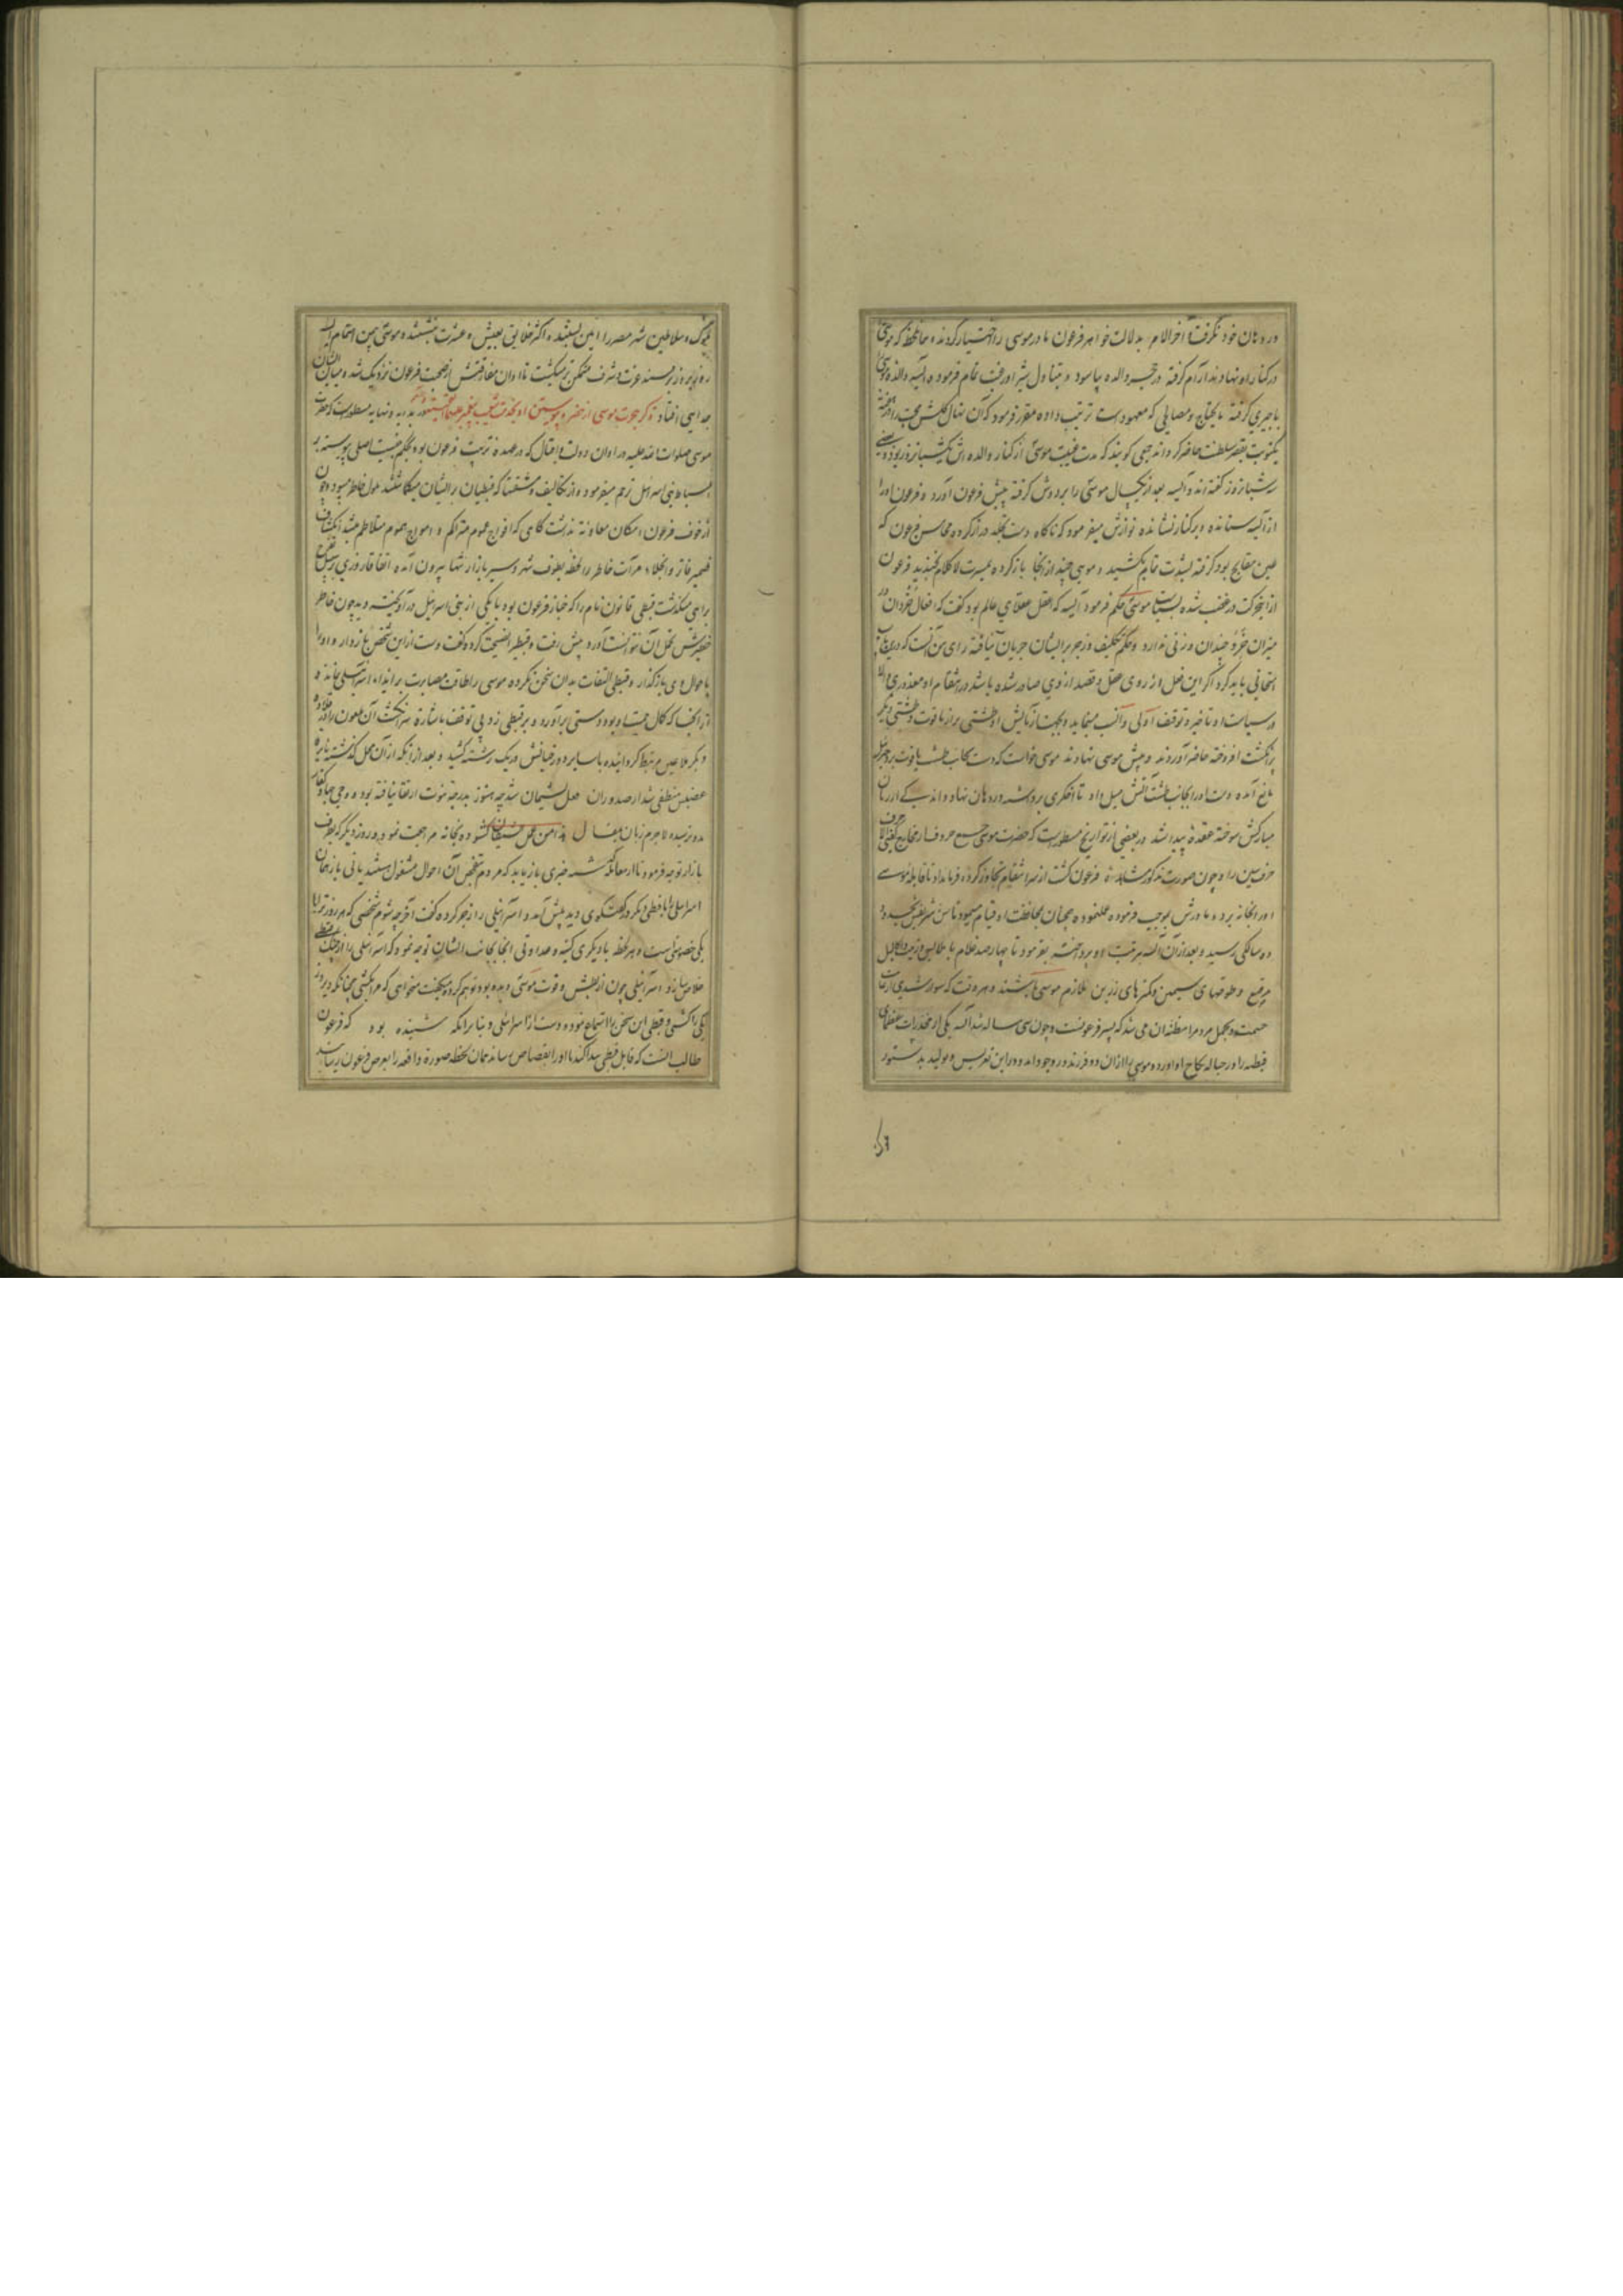 در دهان خود نگرفت آخرالامر بدلالت خواهر فرعون مادر موسی را اختیار کردند و همانلحظه که موسی
در کنار او نهادند آرام گرفته در حجر والده بیاسود و بتناول شیر او رغبت تمام فرمود و آسیه والده موسی
با جیری گرفته مایحتاج و مصالحی که معهودست ترتیب داده مقرر فرمود که آن نهال گلشن محبت را در هفته
یکنوبت بقصر سلطنت حاضر گرداند جمعی گویند که مدت غیبت موسی از کنار والده اش یکشبانروز بود و بعضی
سه شبانروز گفته اند و آسیه بعد از یکسال موسی را بر دوش گرفته پیش فرعون آورد و فرعون او را
از آسیه ستانده و بر کنار نشانده نوازش میفرمود که ناگاه دست بخیه دراز کرده محاسن فرعون که
عین مقابح بود گرفته بشدت تمام بکشید و موسی چند از انجا باز کرده بخندید فرعون
از اینحرکت در غضب شده بسیاست موسی حکم فرمود آسیه که اعقل عقلای عالم بود گفت که افعال خردان در
میزان خرد چندان وزنی ندارد و حکم تکلیف و زجر بر ایشان جریان نیافته رای من آنست که درین باب
امتحانی باید کرد اگر این فعل از روی عقل و قصد از وی صادر شده باشد در انتقام او معذوری والا
در سیاست او تاخیر و توقف اولی و انسب مینماید و بجهت آزمایش او طشتی پر از یاقوت و طشتی دیگر
پر انگشت افروخته حاضر آوردند و پیش موسی نهادند موسی خواست که دست بجانب طشت یاقوت برد جبرئیل
مانع آمده دست او را بجانب طشت آتش میل داد تا اخگری برداشته در دهان نهاد و اندکی از زبان
مبارکش سوخته عقده پیدا شد در بعضی از تواریخ مسطورست که حضرت موسی جمیع حروف از مخارج گفتی الا حرف
حرف سین را و چون صورت مذکور مشاهده فرعون گشت از سر انتقام تجاوز کرده فرمان داد تا قابله موسی
او را بخانه برد و مادرش بموجب فرموده عملنموده همچنان بمحافظت او قیام مینمود تا سن شریفش بحد
ده سالگی رسید و بعد از آن آسیه بتربیت او پرداخته بفرمود تا چهارصد غلام با
مرصع و طوقهای سیمین و کمرهای زرین ملازم موسی باشند و هر وقت که سوار شدی از غایت
حشمت و تجمل مردم را مظنه آن می شد که پسر فرعونست و چون سی ساله شد آسیه یکی از مخدرات عظمای
قبطیه را در حباله نکاح او آورد و موسی را از آن دو فرزند در وجود آمد و در این تعریس و تولید بدستور
ملوک و سلاطین شهر مصر را آیین بستند و اکثر خلایق بعیش و عشرت نشستند و موسی بیمن اهتمام
روز بروز بر مسند عزت و شرف متمکن تر میگشت تا اوان مفارقتش از صحبت فرعون نزدیک شده میان ایشان
جدایی افتاد ذکر هجرت موسی از مصر و پیوستن او بخدمت شعیب پیغمبر علیهما در بدایه و نهایه مسطورست که حضرت
موسی صلوات الله علیه در اوان دولت و اقبال که در عهده تربیت فرعون بود بحکم جنسیت اصلی پیوسته بر
اسباط بنی اسرائیل ترحم میفرمود و از تکالیف و مشقتها که قبطیان بر ایشان میگماشتند ملول خاطر میبود و چون
از خوف فرعون امکان معاونت نداشت گاهی که افواج غموم متراکم و امواج هموم متلاطم میشد
ضمیر و انجلاء مرآت خاطر را لحظه بطوف شهر و سیر بازار تنها بیرون آمده اتفاقا روزی
براهی میگذشت قبطی قانون نام را که خباز فرعون بود با یکی از بنی اسرائیل در آویخته دید چون خاطر
خطیرش تحمل آن نتوانست آورد پیش رفت و قبطی را نصیحت کرده گفت دست ازین شخص باز دار و او را
باحوال وی باز گذار و قبطی التفات بدان سخن نکرده موسی را طاقت مصابرت بر ایذاء اسرائیلی نماند و
از آنجا که کمال حمیت او بود دستی برآورده بر قبطی زد بی توقف باشارة سر انگشت آن ملعون را در قلاده
دیگر ملاعین مرتبط گردانیده با سایر دوزخیانش در یک رشته کشید و بعد از انکه از آن محل گذشت نایره
غضبش منطفی شد از صدور آن عمل پشیمان شد چه هنوز بدرجه نبوت ارتقا نیافته بود و وحی
بدو نرسیده لاجرم زبان بمقال هذا من عمل الشیطان گشوده و بخانه مراجعت نمود و روز دیگر که بطرف
بازار توجه فرمود تا از معامله گذشته خبری باز یابد که مردم بتفحص آن احوال مشغول هستند یا نی باز همان
اسرائیلی را با قبطی دیگر در گفتگوی دید پیش آمد و اسرائیلی را زجر کرده گفت اگرچه شوم شخصی که هر روز ترا با
یکی خصومتی است و هر لحظه با دیگری کینه و عداوتی آنجا بجانب ایشان توجه نمود که اسرائیلی را از چنگ قبطی
خلاص سازد اسرائیلی چون از بطش و قوت موسی دیده بود توهم کرده میگفت میخواهی که مرا بکشی چنانکه دیروز
یکی را کشتی و قبطی این سخن را استماع نموده دست از اسرائیلی و بنا بر انکه شنیده بود که فرعون
طالب آنست که قاتل قبطی پیدا کند تا او را بقصاص رساند همان لحظه صورة واقعه را بعرض فرعون رسانید